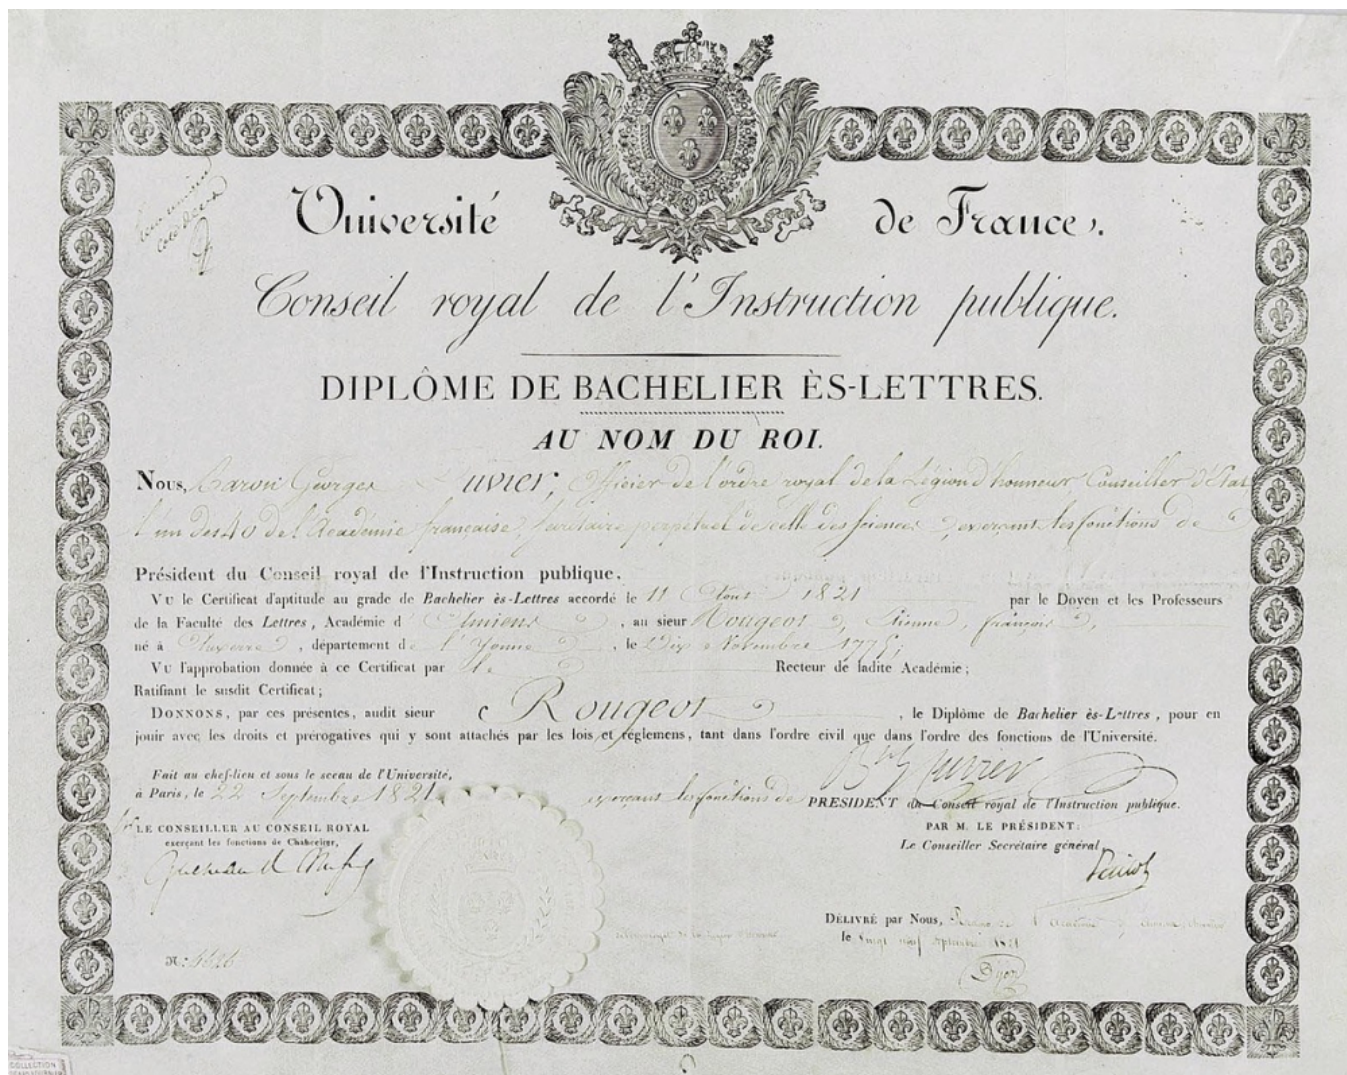 Université de France.
Conseil royal de l'Instruction publique.
DIPLÔME DE BACHELIER ÈS-LETTRES.
AU NOM DU ROI.
Nous, Baron Georges Cuvier, officier de l'ordre royal de la Légion d'honneur Conseiller d'Etat
l'un des 40 de l'Académie française, secrétaire perpétuel de celle des sciences, exerçant les fonctions de
Président du Conseil royal de l'Instruction publique,
VU le Certificat d'aptitude au grade de Bachelier ès-Lettres accordé le 11 Aout 1821 par le Doyen et les Professeurs
de la Faculté des Lettres, Académie d'Amiens, au sieur Rougeot, Etienne, françois,
né à Auxerre, département de l'Yonne, le Dix Novembre 1775;
VU l'approbation donnée à ce Certificat par le Recteur de ladite Académie;
Ratifiant le susdit Certificat;
DONNONS, par ces présentes, audit sieur Rougeot, le Diplôme de Bachelier ès-Lettres, pour en
jouir avec les droits et prérogatives qui y sont attachés par les lois et réglemens, tant dans l'ordre civil que dans l'ordre des fonctions de l'Université.
Fait au chef-lieu et sous le sceau de l'Université,
à Paris, le 22 Septembre 1821
exerçant les fonctions de PRESIDENT du Conseil royal de l'Instruction publique.
Bon Cuvier
LE CONSEILLER AU CONSEIL ROYAL
exerçant les fonctions de Chancelier,
PAR M. LE PRÉSIDENT:
Le Conseiller Secrétaire général,
DÉLIVRÉ par Nous, Recteur de l'Académie
le vingt neuf septembre 1821
N:
COLLECTION